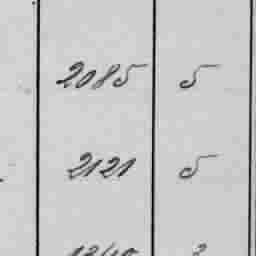 2085 5
2121 5